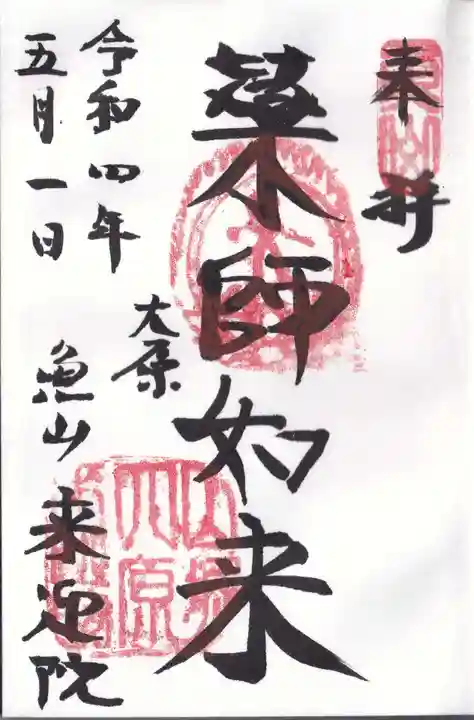 奉拝
薬師如来
大原
令和四年
五月一日
魚山来迎院